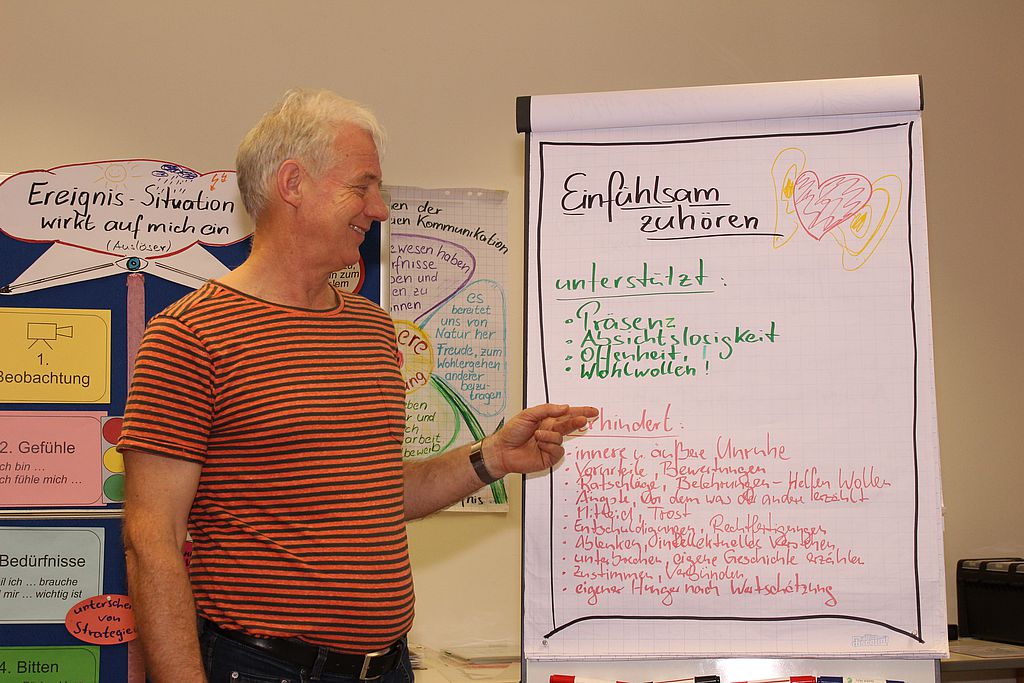 Ereignis - Situation
wirkt auf mich ein
(Auslöser)
1.
Beobachtung
2. Gefühle
ich bin ...
ich fühle mich ...
Bedürfnisse
weil ich ... brauche
mir ... wichtig ist
unterscheiden
von
Strategien
4. Bitten
en der
uen Kommunikation
ewesen haben
rfnisse
ben und
en zu
nnen
es
bereitet
uns von
Natur her
Freude, zum
Wohlergehen
anderer
beizu-
tragen
ere
ung
ben
r und
ch
arbeit
beweis
Einfühlsam
zuhören
unterstützt:
• Präsenz
• Absichtslosigkeit
• Offenheit,
• Wohlwollen!
rhindert:
• innere u. äußere Unruhe
• Vorurteile, Bewertungen
• Ratschläge, Belehrungen - Helfen Wollen
• Ängste, vor dem was der andere erzählt
• Mitleid, Trost
• Entschuldigungen, Rechtfertigungen
• Ablenken, intellektuelles Verstehen
• unterbrechen, eigene Geschichte erzählen
• zustimmen, verbünden
• eigener Hunger nach Wertschätzung